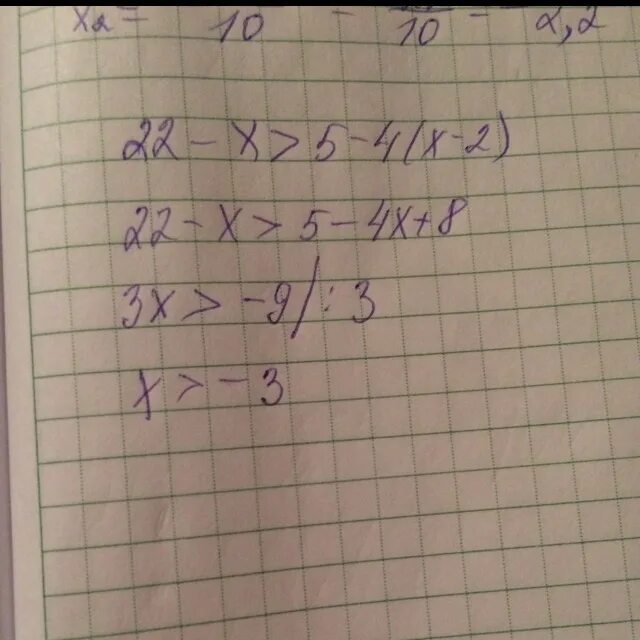 x₂= 10 - 10 - 2,2
22 - x > 5 - 4(x - 2)
22 - x > 5 - 4x + 8
3x > -9 /: 3
x > -3